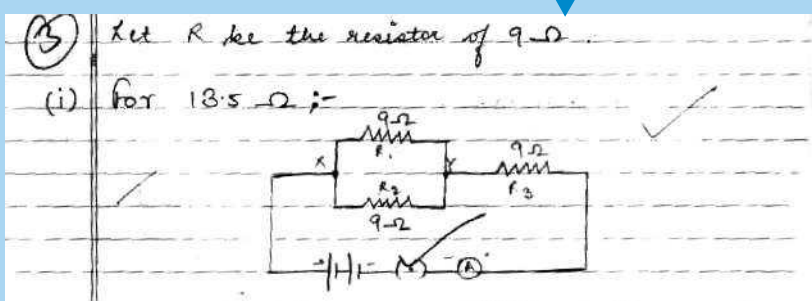 ③ Let R be the resistor of 9Ω.
(i) For 13.5 Ω ;-
9Ω
R1
9Ω
X
Y
R2
R3
9Ω
+ -
- A